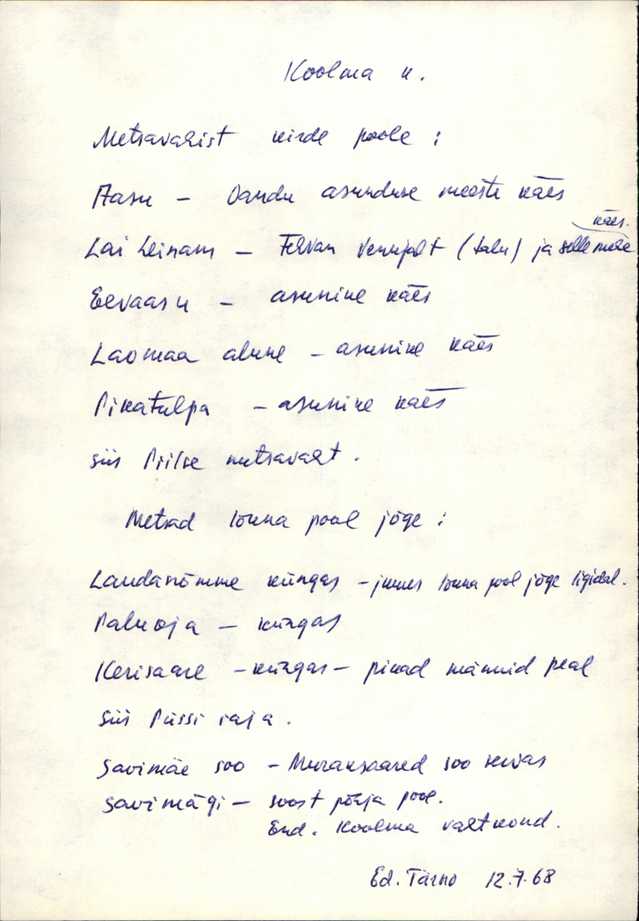 Koolma k.
Metsavahist kirde poole :
Aasu – Oandu asunduse meeste käes
käes.
Lai Leinam – Tervan Vennapalt (talu) ja selle mehe
Eevaasu – asunike käes
Laomaa alune – asunike käes
Pikatulpa – asunike käes
siis Piilse metsavaht.
Metsad lõuna pool jõge :
Laudanõmme küngas – lõuna pool jõge ligidal.
Paluoja – küngas
Kerisaare – küngas – pikad männid peal
siis Püssi raja.
Savimäe soo – Murakasaared soo servas
Savimägi – soost põhja pool.
End. Koolma vahtkond.
Ed. Tarno 12.7.68